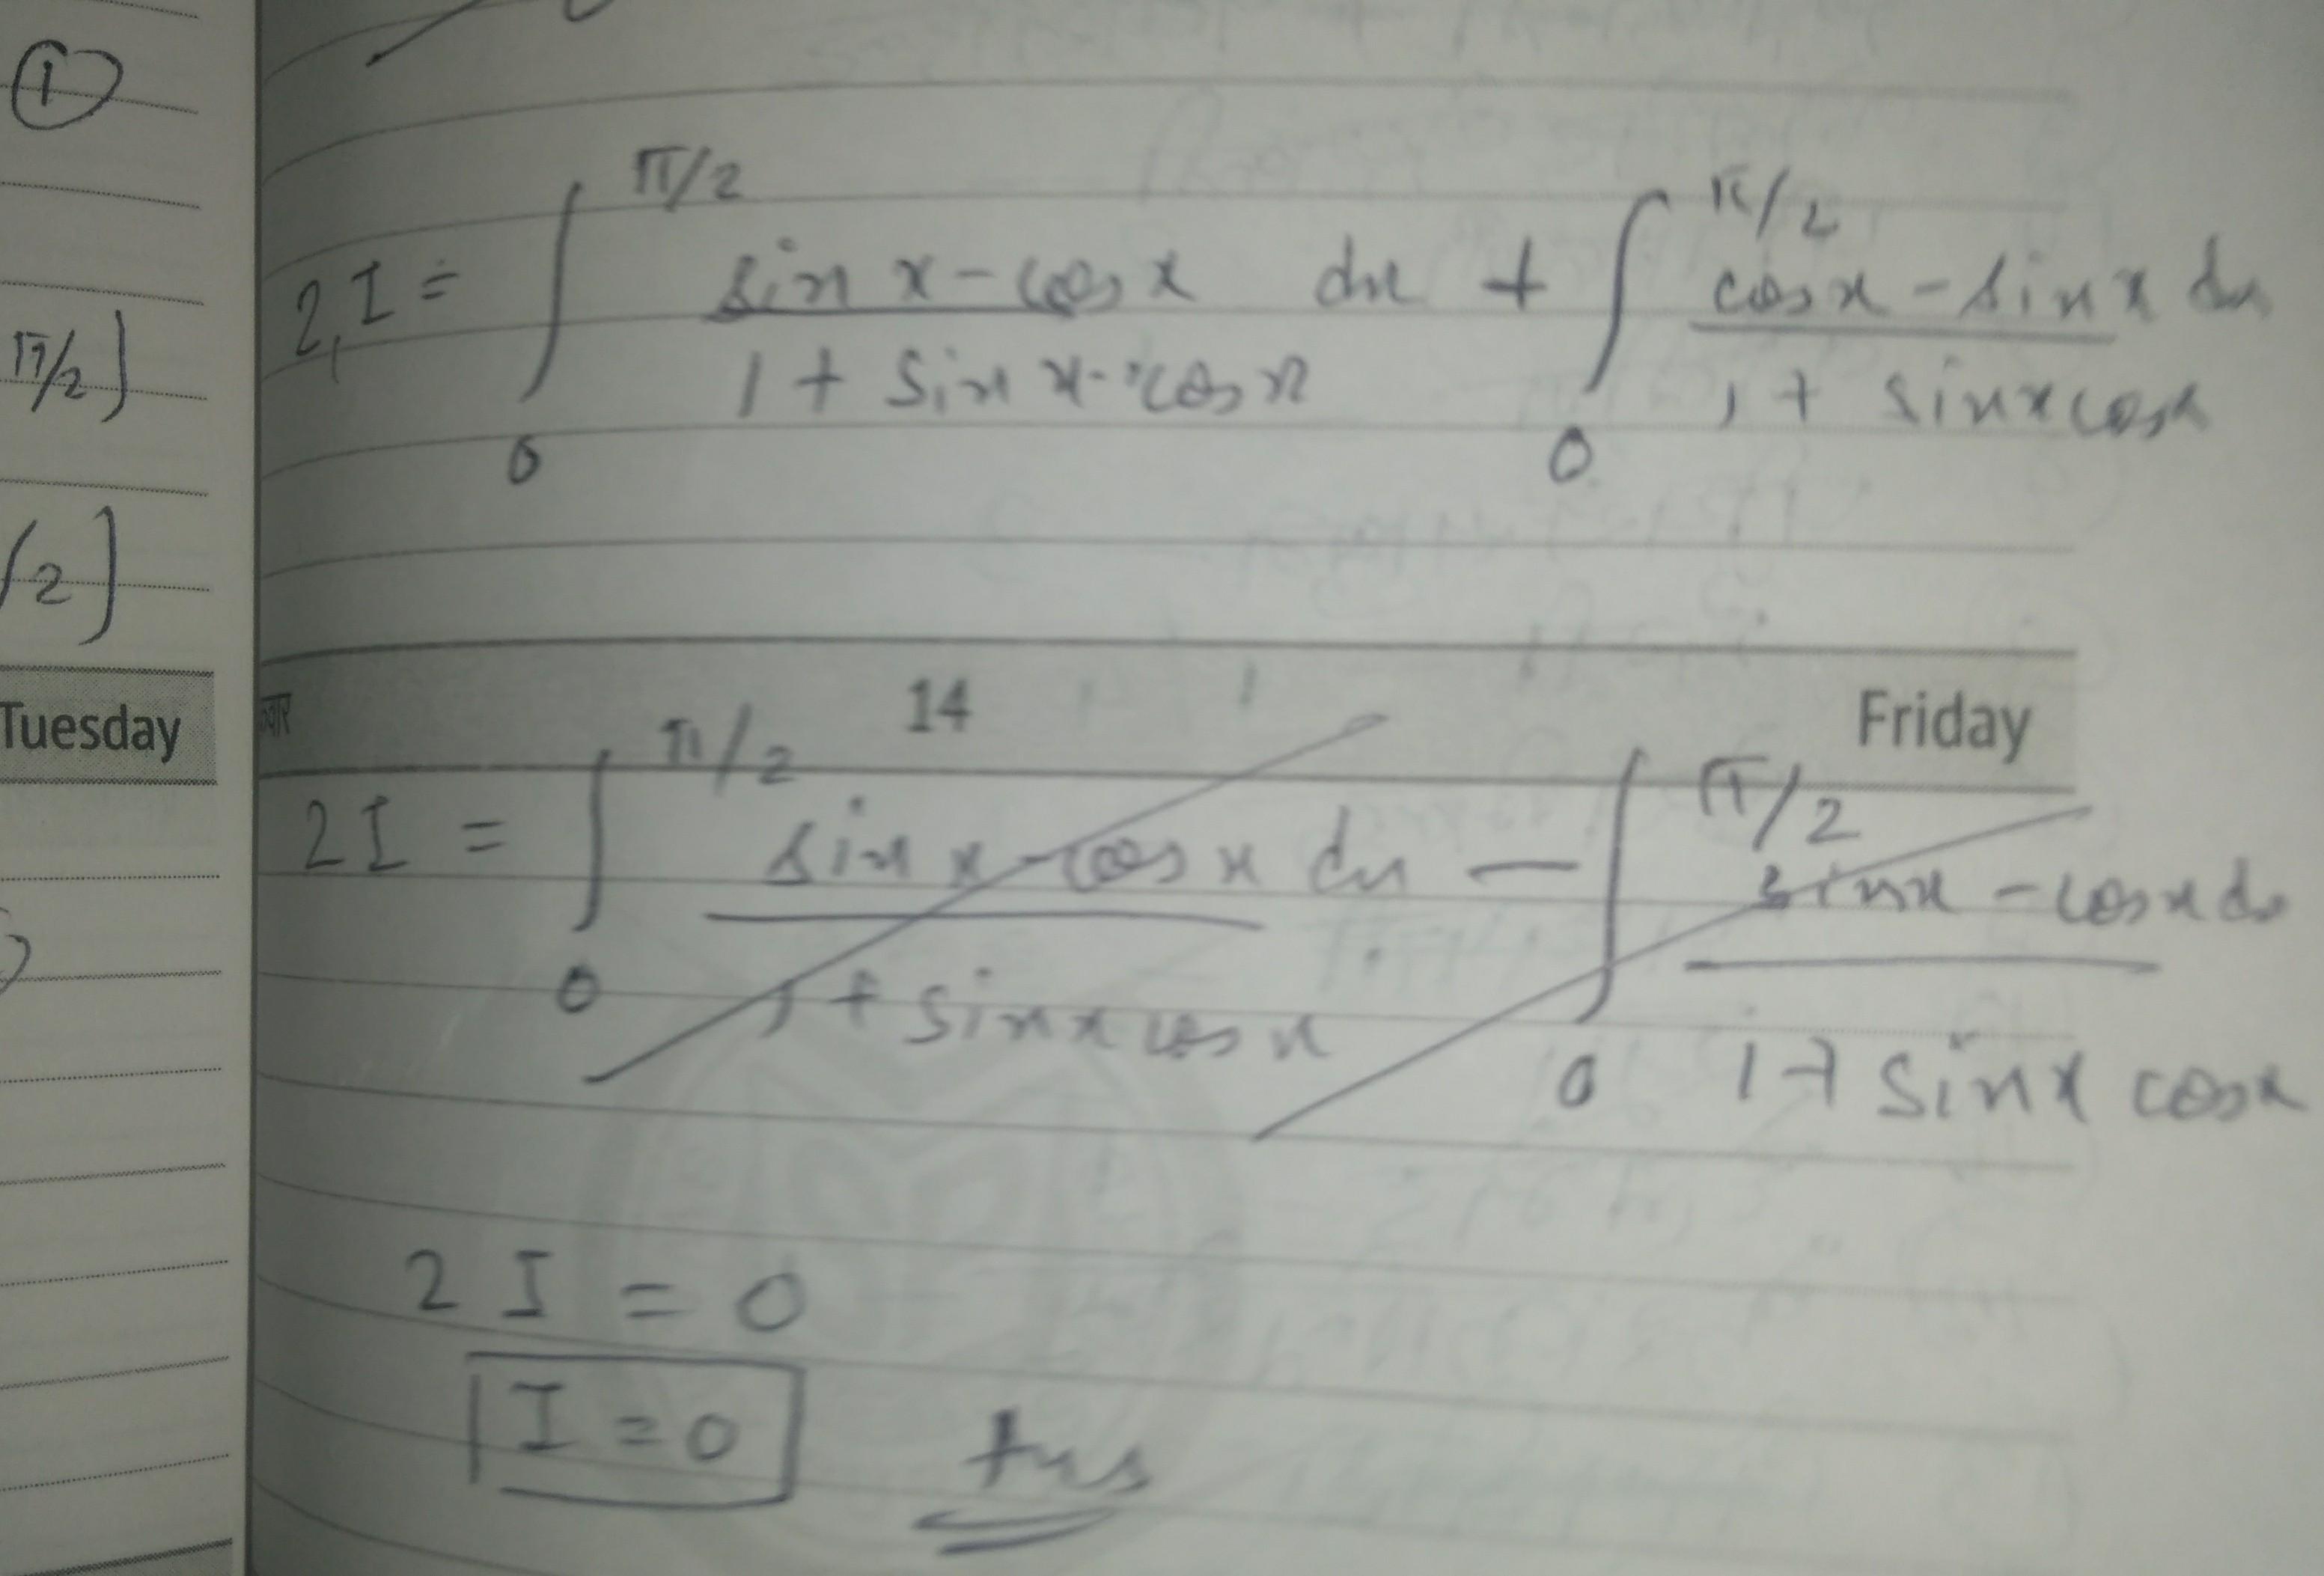 ①
π/2]
/2]
Tuesday
2I = ∫₀^(π/2) (sin x - cos x)/(1 + sin x · cos x) dx + ∫₀^(π/2) (cos x - sin x)/(1 + sin x cos x) dx
14 Friday
2I = ∫₀^(π/2) (sin x - cos x)/(1 + sin x cos x) dx - ∫₀^(π/2) (sin x - cos x)/(1 + sin x cos x) dx
2I = 0
I = 0 Ans